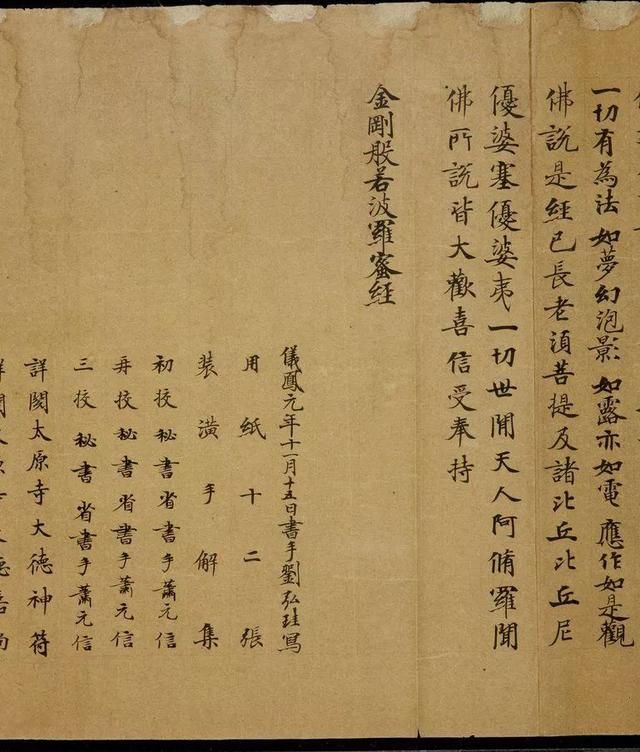 一切有為法 如夢幻泡影 如露亦如電 應作如是觀
佛說是經已長老須菩提及諸比丘比丘尼
優婆塞優婆夷一切世間天人阿脩羅聞
佛所說皆大歡喜信受奉持
金剛般若波羅蜜經
儀鳳元年十一月十五日書手劉弘珪寫
用紙十二張
裝潢手解集
初校秘書省書手蕭元信
再校秘書省書手蕭元信
三校秘書省書手蕭元信
詳閱太原寺大德神符
詳閱太原寺大德嘉尚